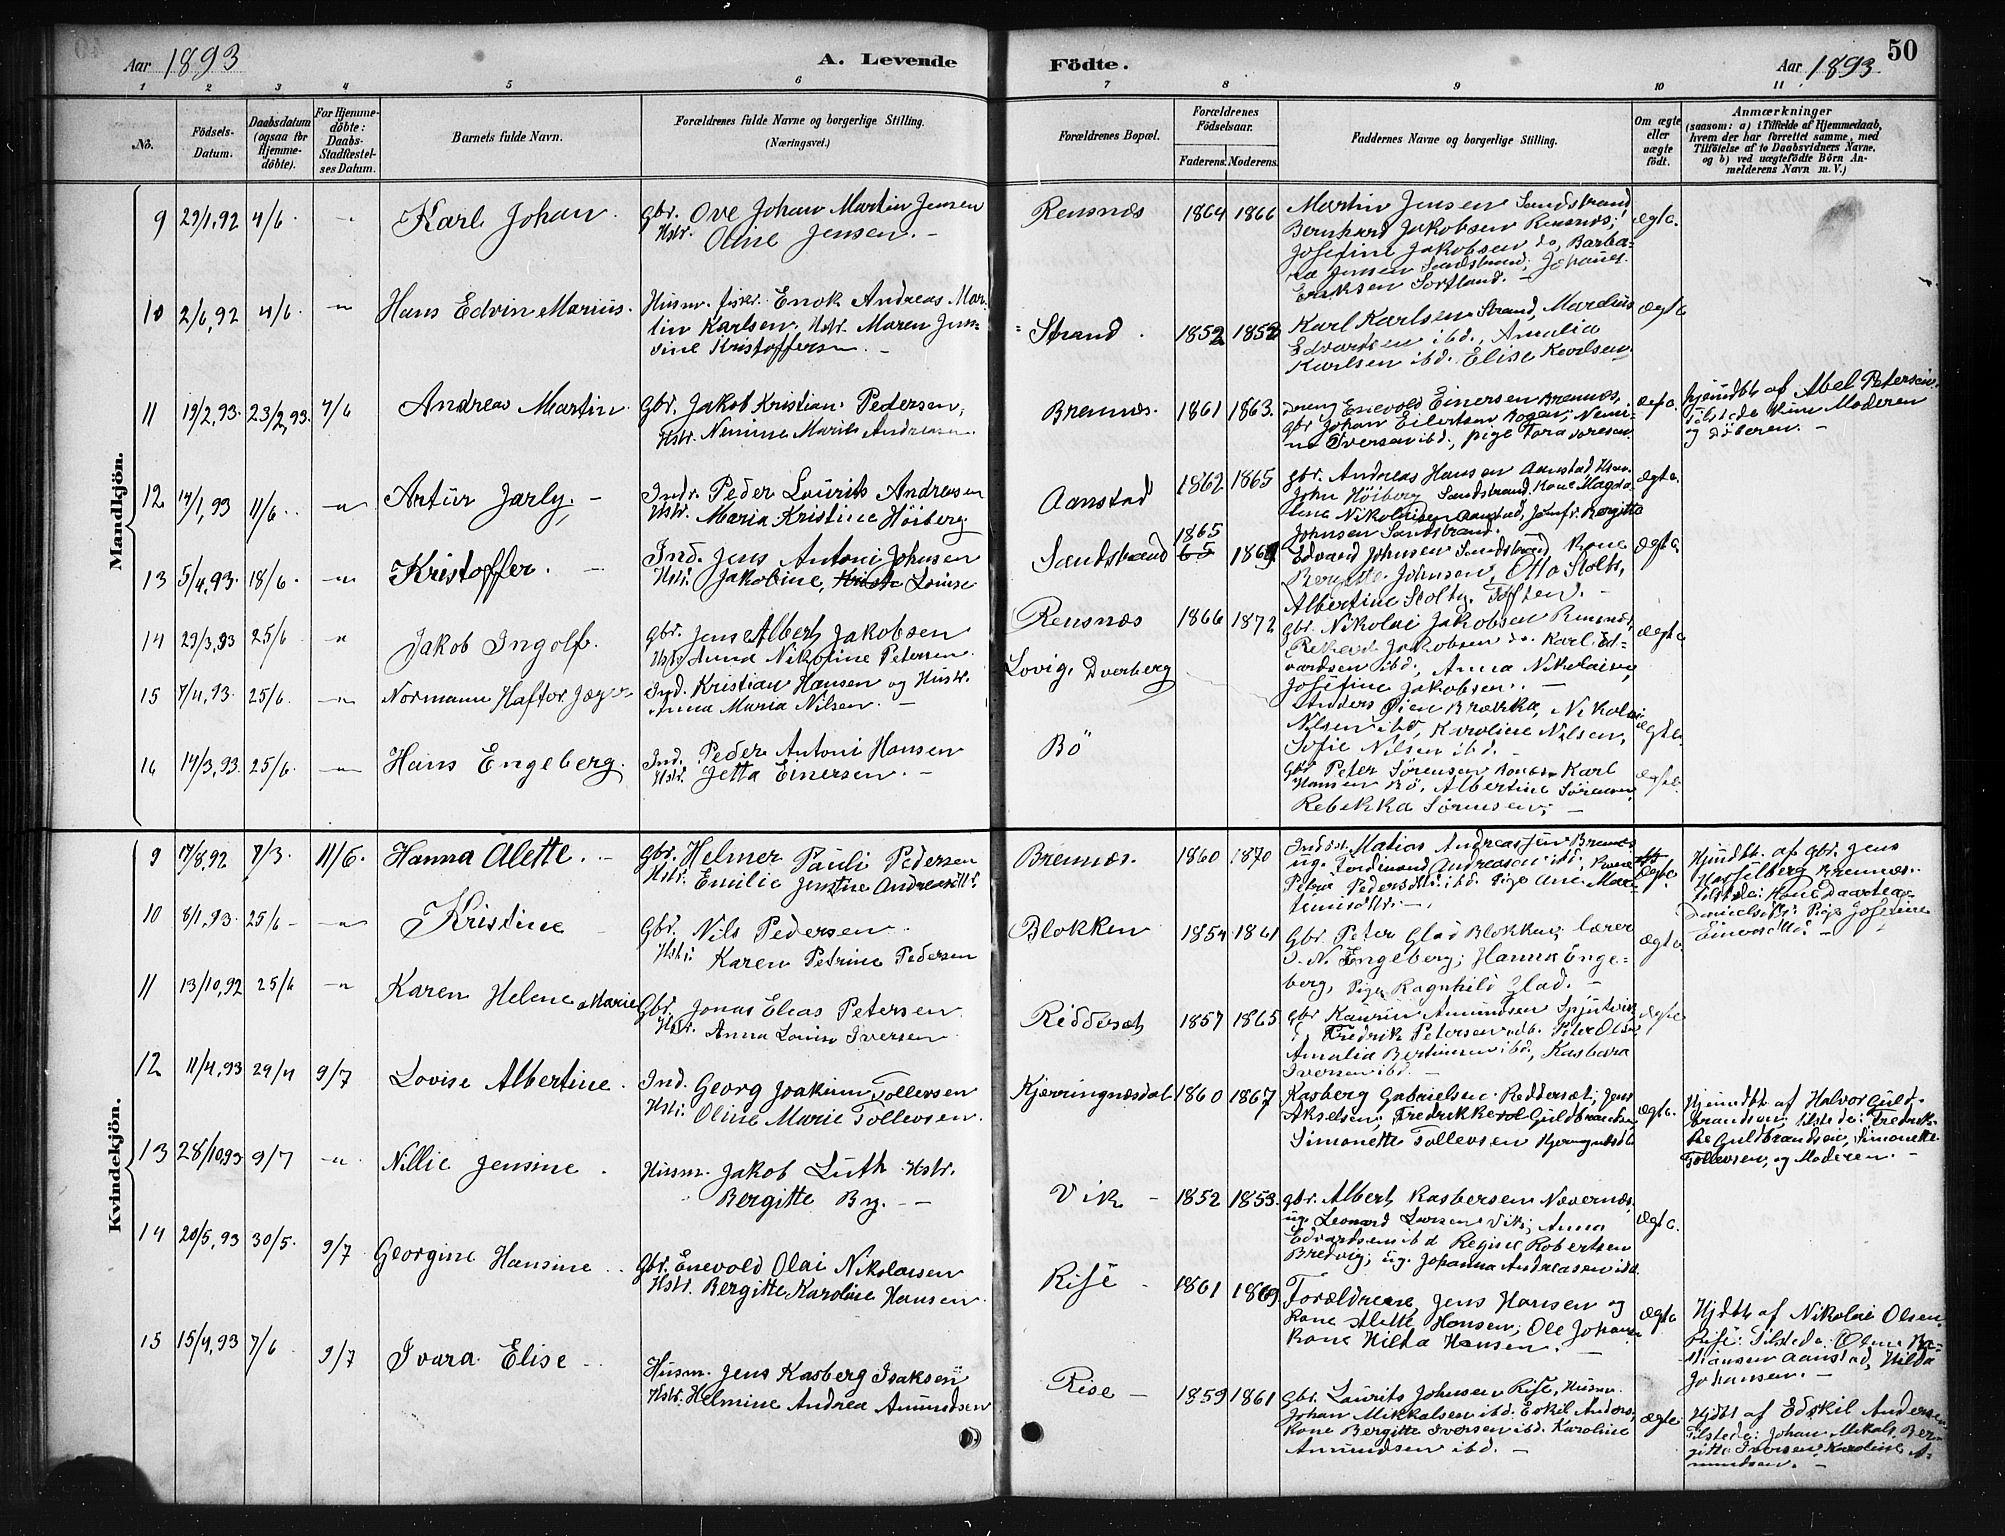 Aar 1893
A. Levende
Födte.
Aar 1893
50
1 2 3 4 5 6 7 8 9 10 11
No.
Födsels-Datum.
Daabsdatum (ogsaa for Hjemme-döbte).
For Hjemme-döbte: Daabs-Stadfæstel-ses Datum.
Barnets fulde Navn.
Forældrenes fulde Navne og borgerlige Stilling.
(Næringsvei.)
Forældrenes Bopæl.
Forældrenes Födselsaar.
Faderens. Moderens.
Faddernes Navne og borgerlige Stilling.
Om ægte eller uægte födt.
Anmærkninger
(saasom: a) i Tilfælde af Hjemmedaab,
hvem der har forrettet samme, med
Tilföielse af to Daabsvidners Navne.
og b) ved uægtefödte Börn An-
melderens Navn m. V.)
Mandkjön.
9 29/1,92 4/6 -"- Karl Johan. Gbr. Ove Johan Martin Jensen
Hstr. Oline Jensen. -
Rensnæs 1864 1866 Martin Jensen Sandstrand
Bernhard Jakobsen Rensnæs,
Josefine Jakobsen do, Barba-
ra Jensen Sandstrand, Johanes
Eriksen Sortland. -
ægte.
10 2/6,92 4/6 -"- Hans Edvin Marius. Husm. fisker Enok Andreas Mar-
tin Karlsen, Hstr. Maren Jen-
sine Kristoffersen. -
Strand. 1852 1852 Karl Karlsen Strand, Mardius
Edvardsen ibd, Amalia
Karlsen ibd. Elise Karlsen
ægte
11 19/2,93. 23/2,93. 4/6 Andreas Martin Gbr. Jakob Kristian Pedersen,
Hstr. Nemine Marie Andreasen
Brennæs. 1861 1863. Dreng Enevold Einersen Brennæs,
Gbr Johan Eilertsen Bogen, Nemi-
ne Iversen ibd, pige Tora
ægte. Hjemdbt af Abel Petersen.
Tilstede Kun Moderen
og Döberen. -
12 14/1,93 11/6 -"- Artur Jarly, - Indr. Peder Laurits Andreasen
Hstr. Maria Kristine Höiberg
Aanstad 1862 1865 Gbr. Andreas Hansen Aanstad,
John Höiberg Sandstrand. Kone Magda-
lene Nikolaisen Aanstad, Jomfr. Bergitte
Johnsen Sandstrand.
ægte.
13 5/4,93. 18/6 -"- Kristoffer. - Ind. Jens Antoni Johnsen
Hstr. Jakobine, Louise
Sandstrand 1865 65 1869 Edvard Johnsen Sandstrand Kone
Bergitte Johnsen, Otto Stolts,
Albertine Stolts, Toften. -
ægte.
14 29/3,93 25/6 " Jakob Ingolf. Gbr. Jens Albert Jakobsen
Hstr. Anna Nikoline Petersen.
Rensnæs 1866 1872 Gbr. Nikolai Jakobsen Rensnæs,
Jakobsen do Karl Ed-
vardsen ibd, Anna Nikolaisen,
Josefine Jakobsen. -
ægte
15 7/4,93. 25/6 -"- Normann Haftor Jæger Ind. Kristian Hansen og Hustr.
Anna Maria Nilsen. -
Lovig, Dverberg Anders Öien Brækka, Nikolai
Nilsen ibd, Karoline Nilsen,
Sofie Nilsen ibd.
ægte
16 14/3,93. 25/6 -"- Hans Engeberg. Ind. Peder Antoni Hansen
Hstr. Jetta Einersen. -
Bö Gbr Peter Sörensen Karl
Hansen Bö, Albertine Sörensen,
Rebekka Sörensen; -
ægte.
Kvindekjön.
9 17/8,92 7/3. 11/6. Hanna Alette. - Gbr. Helmer Pauli Pedersen
Hstr. Emilie Jentine Andreasdtr.
Brennæs. 1860 1870 Indst. Matias Andreassen Brennæs
ug. Ferdinand Andreasen ibd, Kone
Petra Pedersdtr ibd. Pige Ane Mar-
ægte. Hjemdbt. af Gbr. Jens
Hasselberg Brennæs.
Tilstede: Kone Daartea
Danielsdtr. Pige Josefine
Einersdtr. -
10 8/1,93. 25/6 -"- Kristine Gbr. Nils Pedersen
Hstr. Karen Petrine Pedersen
Blokken 1854 1861 Gbr Peter Glad Blokken, lærer
I. N. Engeberg; Hanna Enge-
berg, Pige Ragnhild Glad. -
ægte
11 13/10,92 25/6 -"- Karen Helene Marie Gbr. Jonas Elias Petersen
Hstr. Anna Louise Iversen
Riddersæt 1857 1865 Gbr Kaurin Amundsen Spjutvik
Fredrik Petersen ibd. Peter Olsen,
Amalia Bertinsen ibd, Kasbara
Iversen ibd. -
ægte
12 11/4,93 29/4 9/7 Lovise Albertine. Ind. Georg Joakim Tollevsen
Hstr. Oline Marie Tollevsen.
Kjerringnæsdal 1860 1867 Kasberg Gabrielsen Reddersæt; Jens
Akselsen; Fredrikke Guldbrandsen,
Simonette Tollevsen
ægte. Hjemdbt. af Halvor Guld-
brandsen, tilstede: Fredrik-
ke Guldbrandsen, Simonette
Tollevsen, og Moderen. -
13 28/10,93 9/7 -"- Nillie Jensine. Husm. Jakob Luth. Hstr.
Bergitte By. -
Vik - 1852 1853. Gbr. Albert Kasbersen Nævernæs,
ug. Leonard Larsen Vik; Anna
Edvardsen ibd Regine Robertsen
Bredvig; ug. Johanna Andreasen ibd
ægte.
14 20/5,93 30/5. 9/7 Georgine Hansine. Gbr. Enevold Olai Nikolaisen
Hstr. Bergitte Karoline Hansen.
Rise - 1861 1869. Forældrene, Jens Hansen og
Kone Alette Hansen; Ole Johansen
Kone Hilda Hansen. -
ægte Hjdbt af Nikolai Olsen.
Rise. Tilstede: Oline
Hansen Aanstad, Hilda
Johansen. -
15 15/4,93 7/6 9/7 Ivara Elise. Husm. Jens Kasberg Isaksen
Hstr. Helmine Andrea Amundsen
Rise - 1859 1861 Gbr. Laurits Johnsen Rise, Husm.
Johan Mikkalsen ibd. Eskil Anders.
Kone Bergitte Iversen ibd. Karoline
Amundsen ibd. -
ægte Hjdbt af Edskil Andersen
Tilstede: Johan Mikals, Ber-
gitte Iversen Karoline A-
mundsen. -